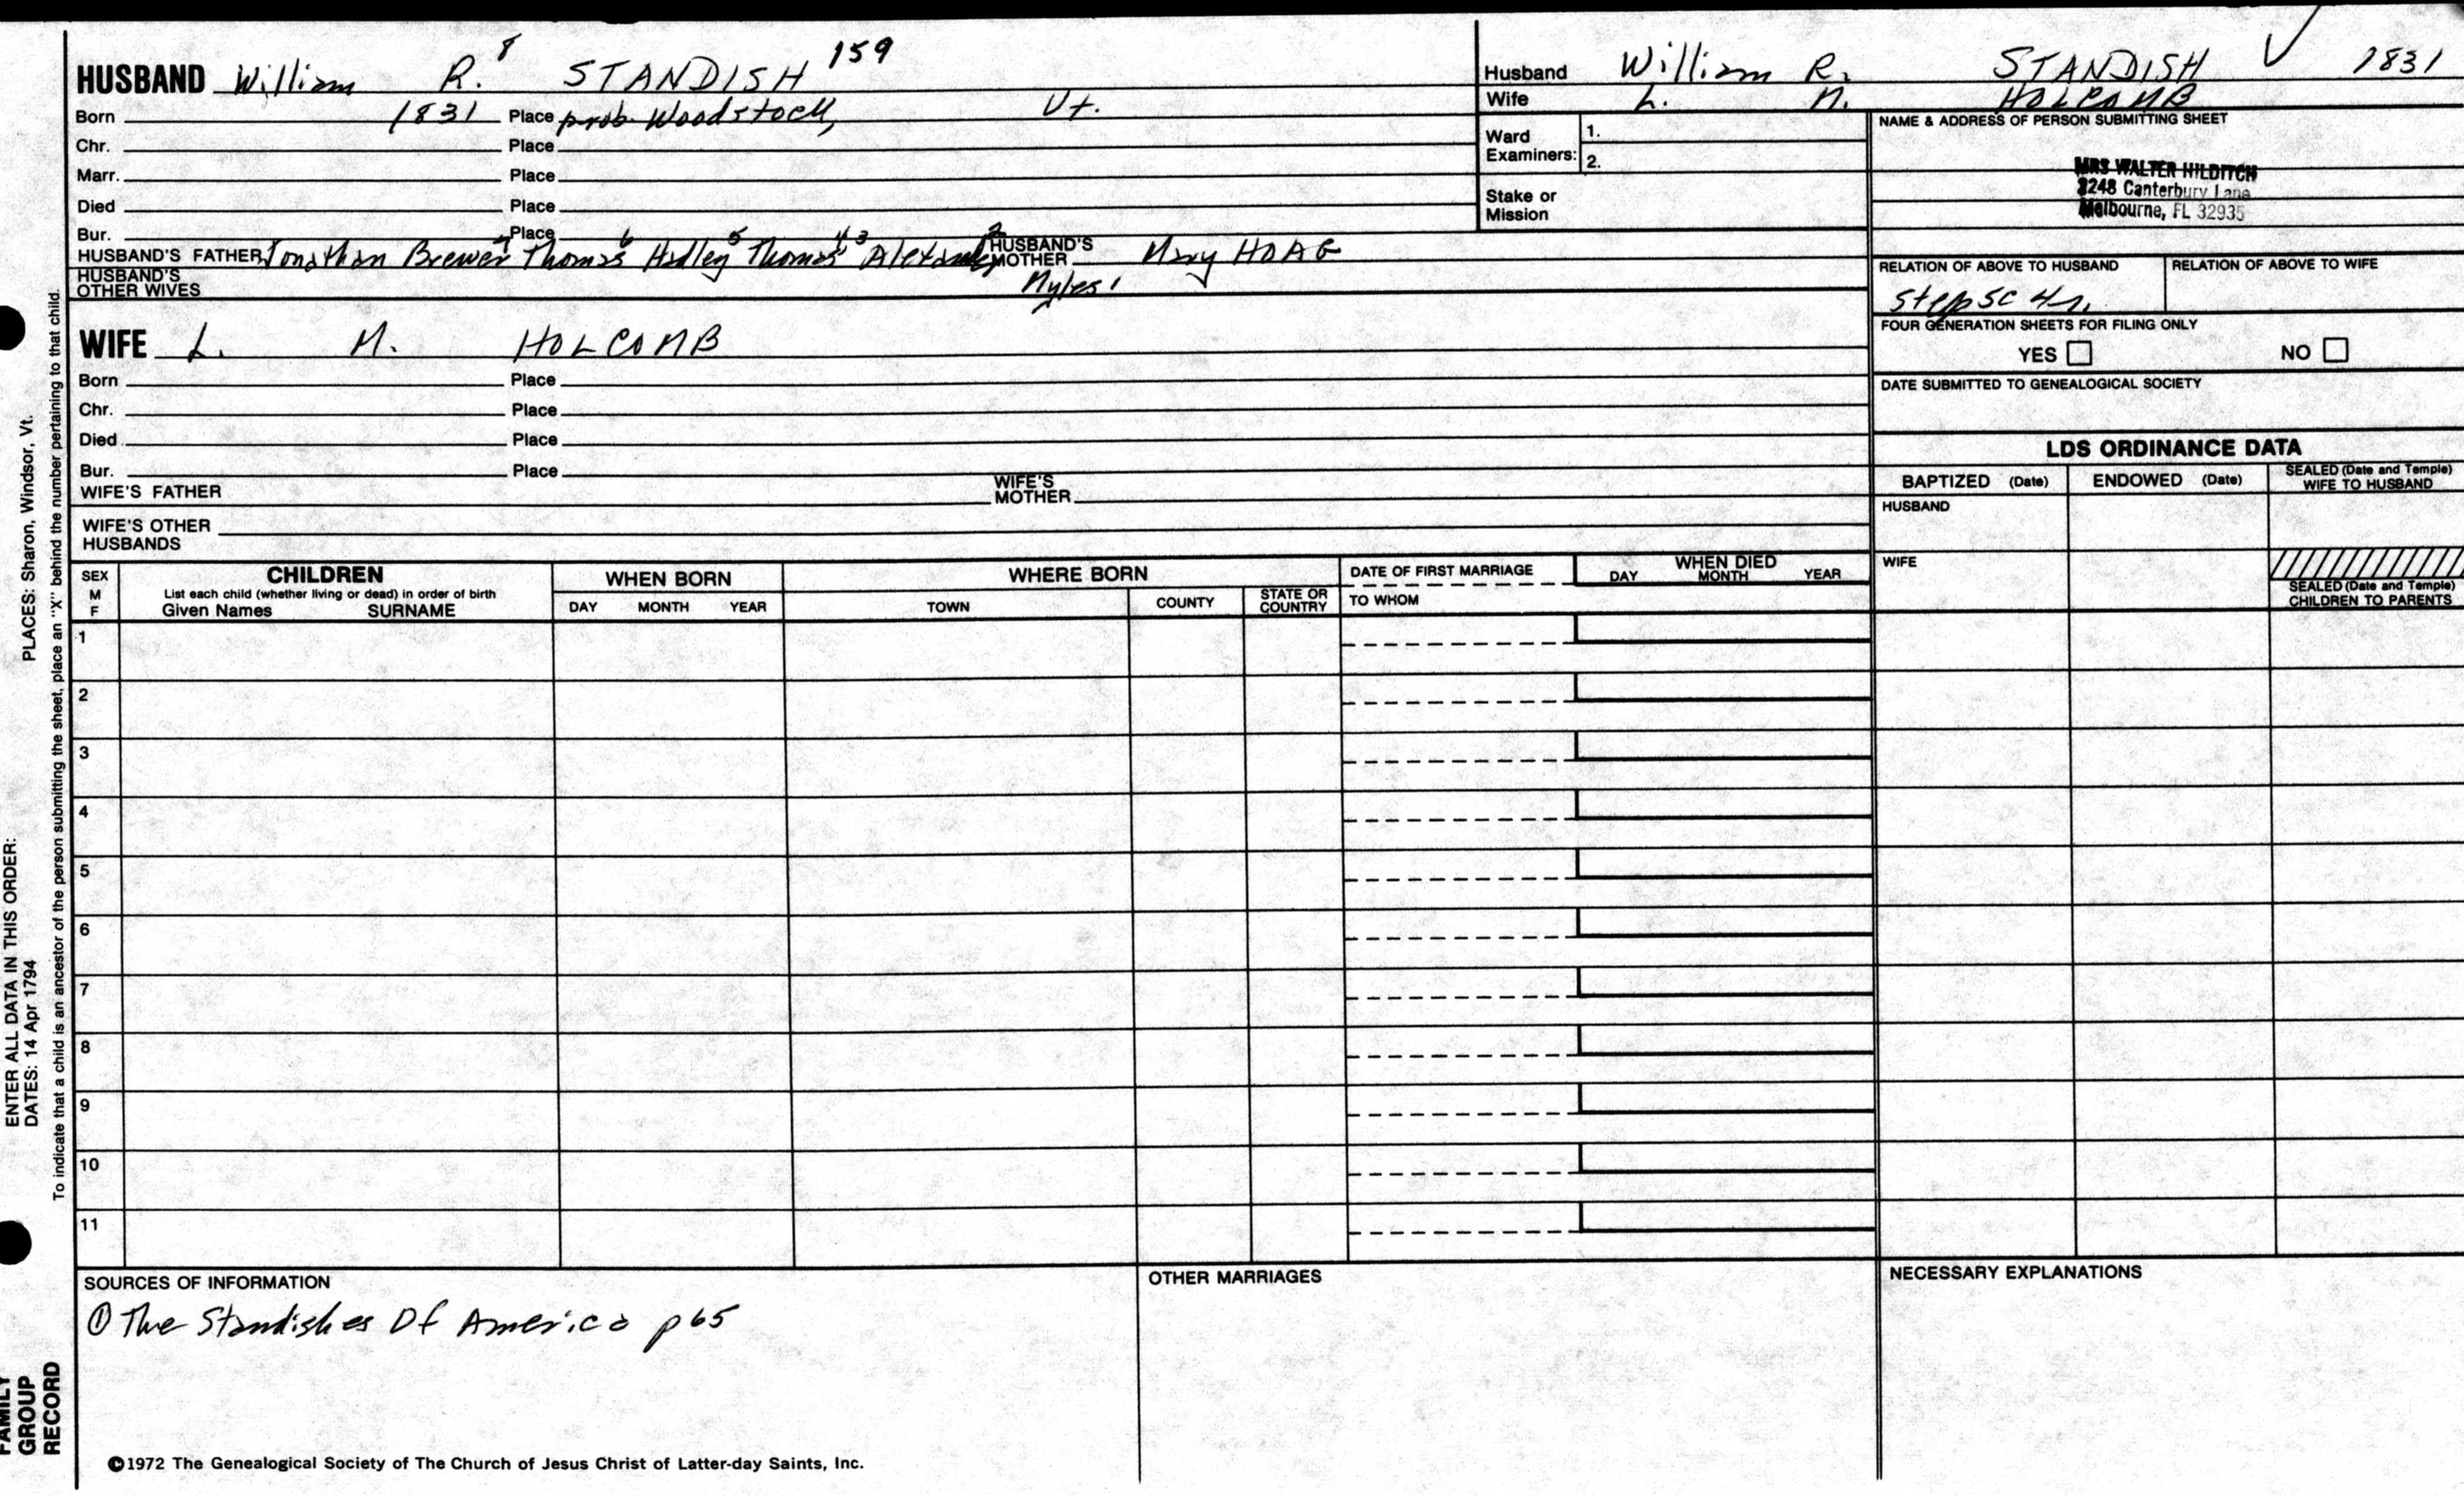 HUSBAND William R.⁸ STANDISH ¹⁵⁹
Born 1831 Place prob. Woodstock, Vt.
Chr. Place
Marr. Place
Died Place
Bur. Place
HUSBAND'S FATHER Jonathan Brewer⁷ Thomas⁶ Hadley⁵ Thomas⁴ ³ Alexander² HUSBAND'S MOTHER Mary HOAG
HUSBAND'S OTHER WIVES Myles¹
WIFE L. M. HOLCOMB
Born Place
Chr. Place
Died Place
Bur. Place
WIFE'S FATHER WIFE'S MOTHER
WIFE'S OTHER HUSBANDS
Husband William R. STANDISH 1831
Wife L. M. HOLCOMB
Ward Examiners: 1.
2.
Stake or Mission
NAME & ADDRESS OF PERSON SUBMITTING SHEET
MRS WALTER HILDITCH
3248 Canterbury Lane
Melbourne, FL 32935
RELATION OF ABOVE TO HUSBAND RELATION OF ABOVE TO WIFE
FOUR GENERATION SHEETS FOR FILING ONLY
YES NO
DATE SUBMITTED TO GENEALOGICAL SOCIETY
LDS ORDINANCE DATA
BAPTIZED (Date) ENDOWED (Date) SEALED (Date and Temple) WIFE TO HUSBAND
HUSBAND
WIFE
SEALED (Date and Temple) CHILDREN TO PARENTS
SEX M F
CHILDREN
List each child (whether living or dead) in order of birth
Given Names SURNAME
WHEN BORN
DAY MONTH YEAR
WHERE BORN
TOWN COUNTY STATE OR COUNTRY
DATE OF FIRST MARRIAGE
TO WHOM
WHEN DIED
DAY MONTH YEAR
1
2
3
4
5
6
7
8
9
10
11
SOURCES OF INFORMATION
① The Standishes Of America p 65
OTHER MARRIAGES
NECESSARY EXPLANATIONS
©1972 The Genealogical Society of The Church of Jesus Christ of Latter-day Saints, Inc.
ENTER ALL DATA IN THIS ORDER:
DATES: 14 Apr 1794 PLACES: Sharon, Windsor, Vt.
To indicate that a child is an ancestor of the person submitting the sheet, place an "X" behind the number pertaining to that child.
FAMILY
GROUP
RECORD